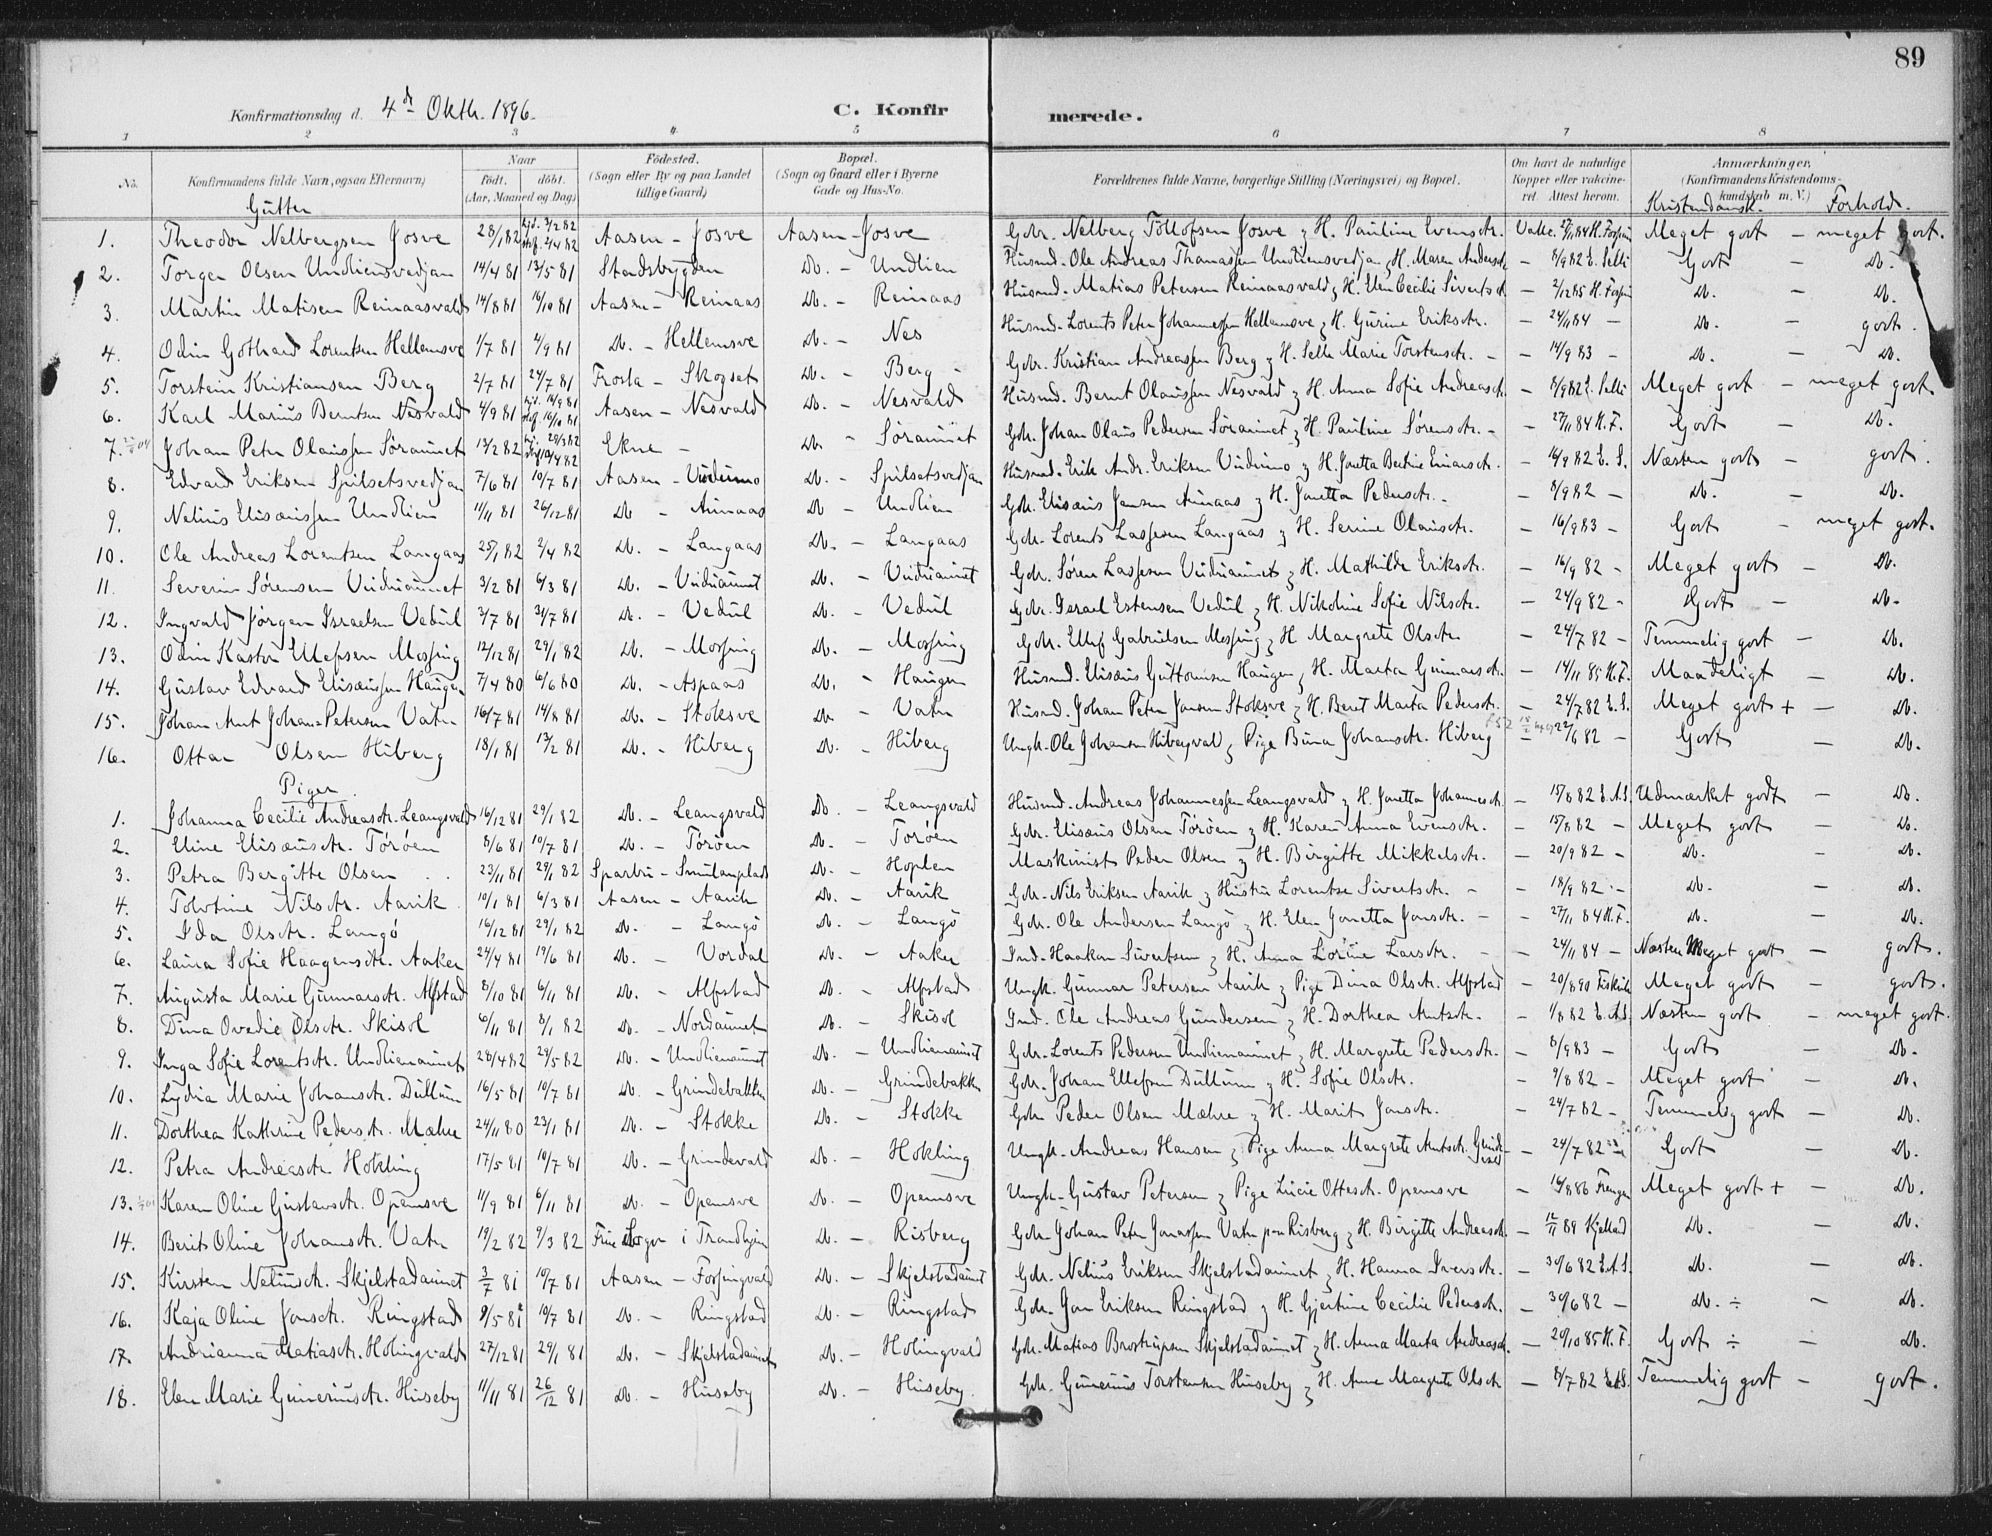 89
Konfirmationsdag d. 4de Oktbr. 1896.
C. Konfirmerede.
1 2 3 4 5 6 7 8
No. Konfirmandens fulde Navn, ogsaa Efternavn) Naar Födt. döbt. (Aar, Maaned og Dag) Födested. (Sogn eller By og paa Landet tillige Gaard) Bopæl. (Sogn og Gaard eller i Byerne Gade og Hus-No. Forældrenes fulde Navne, borgerlige Stilling (Næringsvei) og Bopæl. Om havt de naturlige Kopper eller vaccineret. Attest herom. Anmærkninger, (Konfirmandens Kristendomskundskab m. V.)
Kristendomsk. Forhold.
Gutter
1. Theodor Nelbergsen Josve 28/1 82 hjd. 3/2 82 stdf. 2/4 82 Aasen - Josve Aasen - Josve Gdbr. Nelberg Tollofsen Josve & H. Pauline Evensdtr. Vakc. 27/11 84 Meget godt - meget godt.
2. Torger Olsen Undliensvedjan 14/4 81 13/5 81 Stadsbygden Do. - Undlien Husmd. Ole Andreas Thomassen Undliensvedjan & H. Maren Andersdtr. - 8/9 82 E. Selli Godt - Do.
3. Martin Matisen Reinaasvald 14/8 81 16/10 81 Aasen - Reinaas Do. - Reinaas Husmd. Matias Petersen Reinaasvald & H. Elen Cecilie Sivertsdtr. - 2/12 85 Do. - Do.
4. Odin Gothard Lorentsen Hellemsve 1/7 81 4/9 81 Do. - Hellemsve Do. - Nes Husmd. Lorents Peter Johannessen Hellemsve & H. Gurine Eriksdtr. - 24/11 84 - Do. - godt.
5. Torstein Kristiansen Berg 2/7 81 24/7 81 Frosta - Skogset Do. - Berg - Gdbr. Kristian Andreassen Berg & H. Selle Marie Torstensdtr. - - 14/9 83 - Do. - Do.
6. Karl Marius Berntsen Nesvald 4/9 81 hjd. 14/9 81 stdf. 16/10 81 Aasen - Nesvald Do. - Nesvald Husmd. Bernt Olaussen Nesvald & H. Anna Sofie Andreasdtr. - 8/9 82 E. Selli Meget godt - meget godt.
7. Johan Peter Olaussen Söraunet 13/2 82 hj. 28/3 82 10/4 82 Ekne - Do. - Söraunet Gdr. Johan Olaus Pedersen Söraunet & H. Pauline Sörensdtr. - - 27/11 84 H. F. Godt - Do.
8. Edvard Eriksen Spilsetsvedjan 7/6 81 10/7 81 Aasen - Vudumo Do. - Spilsetsvedjan Husmd. Erik Andr. Eriksen Vudumo & H. Jonetta Bertine Einarsdtr. - 16/9 82 E. S. Næsten godt - godt.
9. Nelius Elisæussen Undlien 11/11 81 26/12 81 Do - Aunaas Do - Undlien Gdr. Elisæus Jonsen Aunaas & H. Jonetta Pedersdtr. - - 8/9 82 - Do. - Do.
10. Ole Andreas Lorentsen Langaas 25/1 82 2/4 82 Do. - Langaas Do. - Langaas Gdr. Lorents Lassesen Langaas & H. Serine Olausdtr. - 16/9 83 - Godt - meget godt.
11. Severin Sörensen Vuduaunet 3/2 81 6/3 81 Do. - Vuduaunet Do. - Vuduaunet Gdr. Sören Lassesen Vuduaunet & H. Mathilde Eriksdtr. - 16/9 82 - Meget godt - Do.
12. Ingvald Jörgen Israelsen Vedul 3/7 81 31/7 81 Do. - Vedul Do. - Vedul Gdr. Israel Estensen Vedul & H. Nikoline Sofie Nilsdtr. - 24/9 82 - Godt - Do.
13. Odin Kastor Ellefsen Mossing 12/12 81 29/1 82 Do. - Mossing Do. - Mossing Gdr. Ellef Gabrielsen Mossing & H. Margrete Olsdtr. - 24/7 82 - Temmelig godt - Do.
14. Gustav Edvard Elisæussen Haugen 7/4 80 6/6 80 Do. - Aspaas Do. - Haugen Husmd. Elisæus Guttormsen Haugen & H. Marta Gunnarsdtr. - 14/11 85 H. F. Maadeligt - Do.
15. Johan Arnt Johan-Petersen Vatn 16/7 81 14/8 81 Do. - Stoksve Do. - Vatn Husmd. Johan Peter Jonsen Stoksve & H. Beret Marta Pedersdtr. - 24/7 82 E. S. Meget godt + - Do.
16. Ottar Olsen Hiberg 18/1 81 13/2 81 Do. - Hiberg Do. - Hiberg Ungk. Ole Johansen Hibergvald & Pige Buna Johansdtr. Hiberg - 22/6 82 - Godt - Do.
Piger
1. Johanna Cecilie Andreasdtr. Leangsvald 16/12 81 29/1 82 Do. - Leangsvald Do. - Leangsvald Husmd. Andreas Johannessen Leangsvald & H. Jonetta Johannesdtr. - 15/8 82 E. A. S. Udmærket godt - Do.
2. Eline Elisæusdtr. Töröen 8/6 81 10/7 81 Do. - Töröen Do. - Töröen Gdr. Elisæus Olsen Töröen & H. Karen Anna Evensdtr. - 15/8 82 - Meget godt - Do.
3. Petra Bergitte Olsen 23/11 81 29/1 82 Sparbu - Smulanplads Do. - Hoplen Maskinist Peder Olsen & H. Birgitte Mikkelsdtr. - 20/9 82 - Do. - Do.
4. Tolvtine Nilsdtr. Aavik 10/1 81 6/3 81 Aasen - Aavik Do. - Aavik Gdr. Nils Eriksen Aavik & Hustru Lorentse Sivertsdtr. - - 18/9 82 - Do. - Do.
5. Ida Olsdtr. Langö 16/12 81 29/1 82 Do. - Langö Do. - Langö Gdr. Ole Andersen Langö & H. Elen Jonetta Jonsdtr. - - 27/11 84 H. F. Do. - Do.
6. Laura Sofie Haagensdtr. Aaker 24/4 81 19/6 81 Do. - Vordal Do. - Aaker Ind. Haakon Sivertsen & H. Anna Lorine Larsdtr. - - 24/11 84 - Næsten Meget godt - godt.
7. Augusta Marie Gunnarsdtr. Alfstad 8/10 81 6/11 81 Do. - Alfstad Do. - Alfstad Ungk. Gunnar Petersen Aavik & Pige Dina Olsdtr. Alfstad - 20/8 90 Meget godt - godt.
8. Dina Ovedie Olsdtr. Skisol 6/11 81 8/1 82 Do. - Nordaunet Do. - Skisol Ind. Ole Andreas Gundersen & H. Dorthea Arntsdtr. - 1/8 82 E. A. S. Næsten godt - meget godt.
9. Inga Sofie Lorentsdtr. Undlienaunet 28/4 82 29/5 82 Do. - Undlienaunet Do. - Undlienaunet Gdr. Lorents Pedersen Undlienaunet & H. Margrete Pedersdtr. - 8/9 83 - Godt - Do.
10. Lydia Marie Johansdtr. Dullum 16/5 81 10/7 81 Do. - Grindebakken Do. - Grindebakk Gdr. Johan Ellefsen Dullum & H. Sofie Olsdtr. - 9/8 82 - Meget godt - Do.
11. Dorthea Kathrine Pedersdtr. Mæhre 24/11 80 23/1 81 Do. - Stokke Do. - Stokke Gdr Peder Olsen Mæhre & H. Marit Jonsdtr. - 24/7 82 - Temmelig godt - Do.
12. Petra Andreasdtr Hokling 17/5 81 10/7 81 Do. - Grindevald Do. - Hokling Ungk. Andreas Hansen & Pige Anna Margrete Arntsdtr. Grindevald - 24/7 82 Godt - Do.
13. Karen Oline Gustavsdtr. Opemsve 11/9 81 6/11 81 Do. - Opemsve Do. - Opemsve Ungk. Gustav Petersen & Pige Lucie Ottesdtr. Opemsve - 16/8 86 Meget godt + - Do.
14. Berit Oline Johansdtr. Vatn 19/2 82 9/3 82 i Trondhjem Do. - Risberg Gdr. Johan Peter Jonassen Vatn paa Risberg & H. Birgitte Andreasdtr. - 12/11 89 Kjelstad Do. - Do.
15. Kirsten Neliusdtr. Skjelstadaunet 3/7 81 10/7 81 Aasen - Fossingvald Do. - Skjelstadaunet Gdr. Nelius Eriksen Skjelstadaunet & H. Hanna Iversdtr. - 30/6 82 E. A. S. Do. - Do.
16. Kaja Oline Jonsdtr. Ringstad 9/5 81 10/7 81 Do. - Ringstad Do. - Ringstad Gdr. Jon Eriksen Ringstad & H. Gjertine Cecilie Pedersdtr. - 30/6 82 - Do. ÷ - Do.
17. Andrianna Matiasdtr. Holingvald 27/12 81 29/1 81 Do. - Skjelstadaunet Do. - Holingvald Gdr. Matias Brostrupsen Skjelstadaunet & H. Anna Marta Andreasdtr. - 20/10 85 H. F. Godt ÷ - Do.
18. Elen Marie Guneriusdtr. Huseby 11/11 81 26/12 81 Do. - Huseby Do. - Huseby. Gdr. Gunerius Torstensen Huseby & H. Anne Margrete Olsdtr - 8/7 82 E.A.S. Temmelig godt - godt.